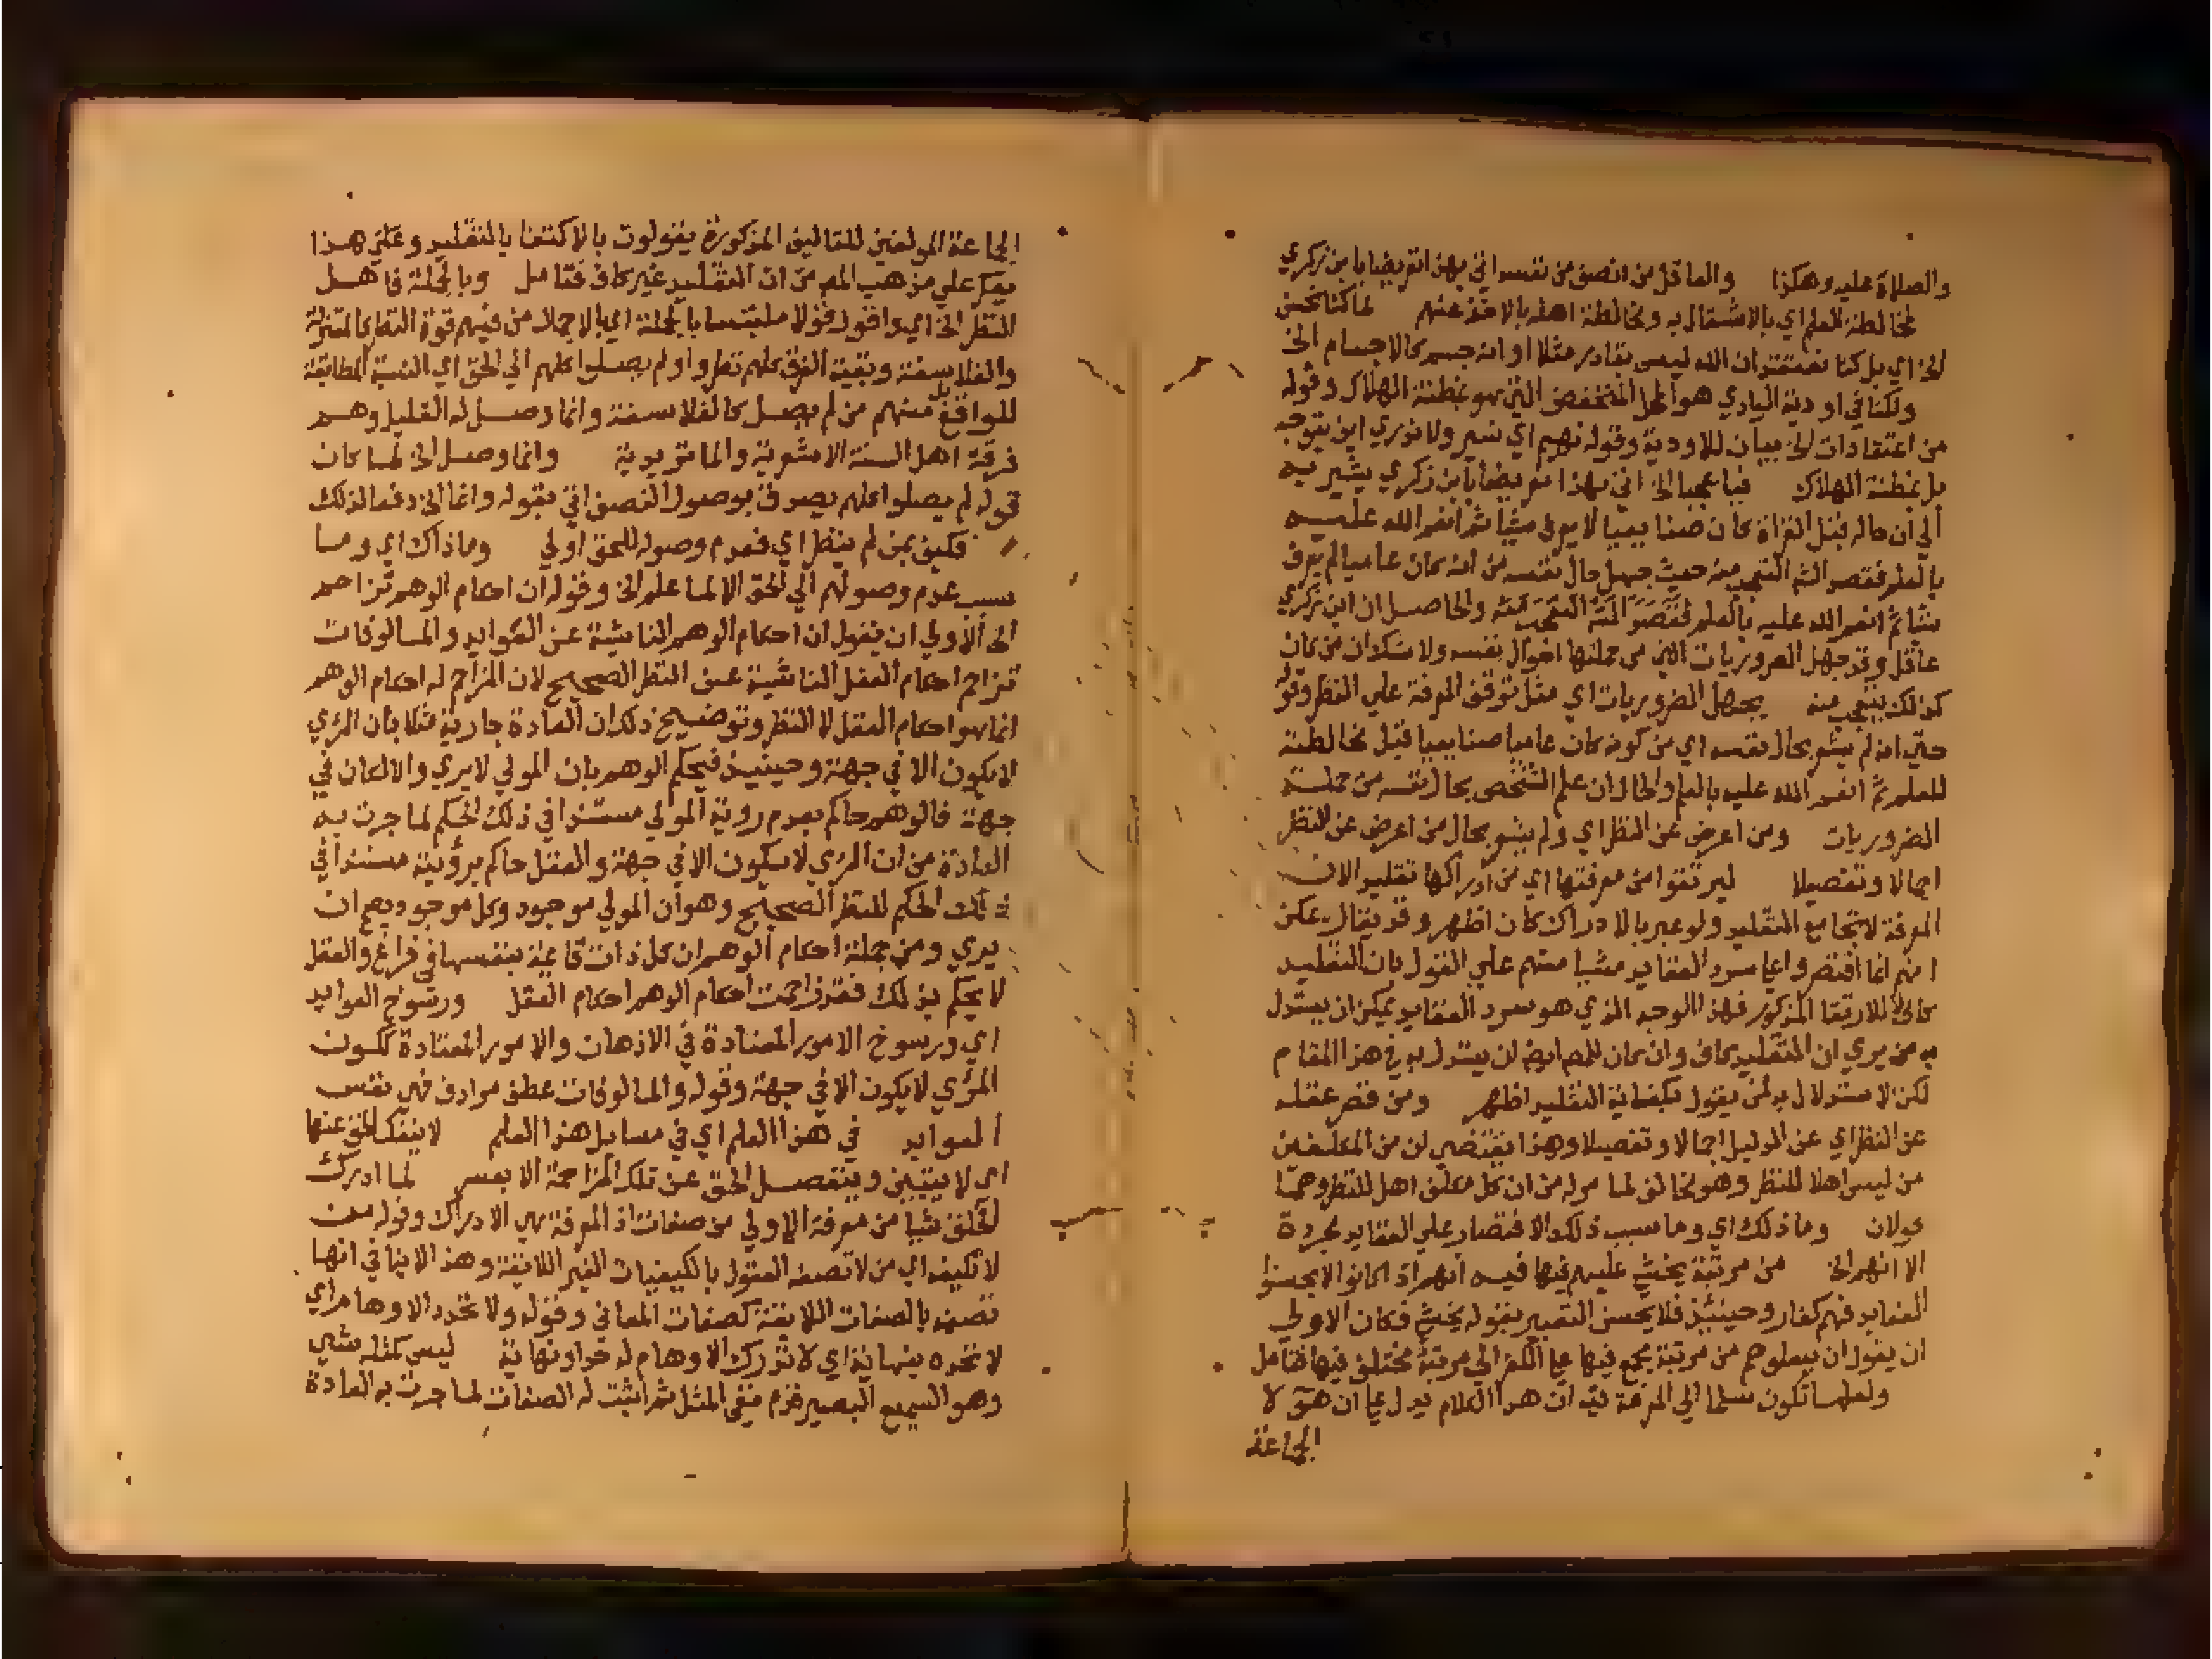 والصلاة عليه وهكذا والعاقل من انصف من نفسه اتي بهذا تعريضا بابن زكري
لمخالطة العلم اي بالاشتغال به ومخالطة اهله بالاخذ عنهم لما كنا نحسن
الخ اي بل كنا نعتقد ان الله ليس بقادر مثلا او انه جسم كالاجسام الخ
ولكنا في اودية اليادي هو المحل المنخفض الذي هو مظنة الهلاك وقوله
من اعتقادات الخ بيان للاودية وقوله نهيم اي نسير ولا ندري اين نتوجه
بل مظنة الهلاك فيا عجبا الخ اتي بهذا تعريضا بابن زكري يشير به
الي ان حاله قبل القراة كان صنما بيميا لا يعرف شيا ثم انعم الله عليه
بالعلم فقصد الشم التعجب منه حيث جهل حال نفسه من انه كان عاميا لم يعرف
شيا ثم انعم الله عليه بالعلم فقصد التعجب منه والحاصل ان ابن زكري
عاقل وقد جهل الضروريات التي من جملتها احوال نفسه ولا شك ان من كان
كذلك يتعجب منه بجهل الضروريات اي مثل توقف المعرفة علي النظر وقوله
حتي انه لم يشعر بحال نفسه اي من كونه كان عاميا صنما بيميا قبل مخالطته
للعلم ثم انعم الله عليه بالعلم والحال ان علم الشخص بحال نفسه من جملة
الضروريات ومن اعرض عن النظر اي ولم يشعر بحال من اعرض عن النظر
اجمالا وتفصيلا ليرتقوا من معرفتها اي من ادراكها تقليدا لان
المعرفة لا تجامع التقليد ولو عبر بالادراك كان اظهر وقد يقال يمكن
انهم انما اقتصروا علي سرد العقايد مشيا منهم علي القول بان التقليد
كاف لا للارتقا المذكور فهذا الوجه الذي هو سرد العقايد يمكن ان يستدل
به من يري ان التقليد كاف وان كان للمصم ايضا لن يستدل به في هذا المقام
لكن الاستدلال به لمن يقول بكفاية التقليد اظهر ومن قصر عقله
عن النظر اي عن الدليل اجمالا وتفصيلا وهذا يقتضي ان من المكلفين
من ليس اهلا للنظر وهو مخالف لما مر له من ان كل مكلف اهل للنظر وهما
قولان وما ذلك اي وما سبب ذلك الاقتصار علي العقايد مجردة
الا انهم الخ من مرتبة يخشي عليهم فيها فيه انهم اذا كانوا لا يحسنوا
العقايد فهم كفار وحينئذ فلا يحسن التعبير بقوله يخشي فكان الاولي
ان يقول ان يعلوهم من مرتبة يجمع فيها علي الكفر الي مرتبة مختلف فيها فتامل
ولعلها تكون سلما الي المعرفة فيه ان هذا الكلام يدل علي ان هولا
الجماعة
الجماعة المولفين للتاليف المذكورة يقولون بالاكتفا بالتقليد وعكي هذا
يعكر علي مذهب المصم من ان التقليد غير كاف فتامل وبالجملة فاهل
النظر الخ اي واقول قولا ملتبسا بالجملة اي بالاجمال من فيهم قوة النظر كالمعتزلة
والفلاسفة وبقية الفرق كلهم نظروا ولم يصلوا كلهم الي الحق اي النسبة المطابقة
للواقع بل منهم من لم يصل كالفلاسفة وانما وصل له القليل وهم
فرقة اهل السنة الاشعرية والماتريدية وانما وصل الخ لما كان
قوله لم يصلوا كلهم يصدق بوصول النصف اتي بقوله وانما الخ دفعا لذلك
فكيف بمن لم ينظر اي فعدم وصوله للحق اولي وما ذاك اي وما
سبب عدم وصولهم الي الحق الا لما علم الخ وقوله ان احكام الوهم تزاحم
الخ الاولي ان يقول ان احكام الوهم الناشية عن العوايد والمالوفات
تزاحم احكام العقل الناشية عن النظر الصحيح لان المزاحم له احكام الوهم
انما هو احكام العقل لا النظر وتوضيح ذلك ان العادة جارية مثلا بان المرئي
لا يكون الا في جهة وحينيذ فيحكم الوهم بان المولي لا يري والا لكان في
جهة فالوهم حاكم بعدم روية المولي مستندا في ذلك الحكم لما جرت به
العادة من ان المرئي لا يكون الا في جهة والعقل حاكم برؤيته مستندا في
ذلك الحكم للنظر الصحيح وهو ان المولي موجود وكل موجود يصح ان
يري ومن جملة احكام الوهم ان كل ذات قائمة بنفسها في فراغ والعقل
لا يحكم بذلك فقد زاحمت احكام الوهم احكام العقل ورسوخ العوايد
اي ورسوخ الامور المعتادة في الاذهان والامور المعتادة ككون
المرئي لا يكون الا في جهة وقوله والمالوفات عطف مرادف فهي نفس
العوايد في هذا العلم اي في مسايل هذا العلم لا ينفك الحق عنها
اي لا يتبين وينفصل الحق عن تلك المزاحمة الا بعسر لما ادرك
الخلق شيا من معرفة المولي من صفاته اذ المعرفة هي الادراك وقوله من
لا تكيفه اي من لا تصفه العقول بالكيفيات الغير اللائقة وهذا لا ينافي انها
تصفه بالصفات اللائقة كصفات المعاني وقوله ولا تحدد الاوهام اي
لا تحده بنهاية اي لا تدرك الاوهام له حدا ونهاية ليس كمثله شي
وهو السميع البصير فقدم نفي المثل ثم اثبت له الصفات لما جرت به العادة